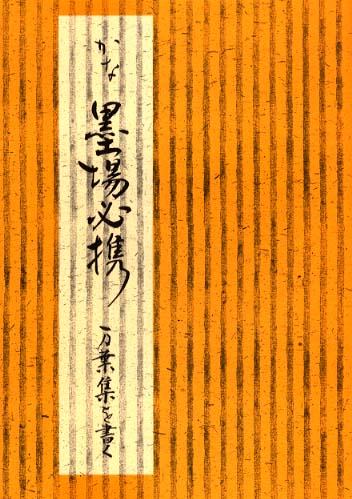 かな
墨場必携
万葉集を書く